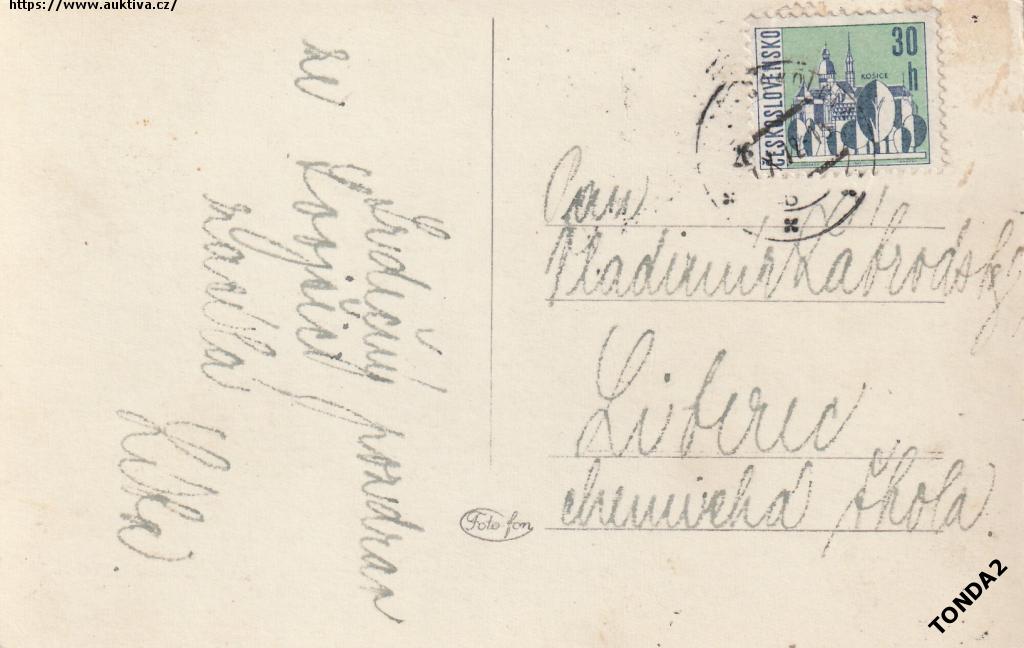 https://www.auktiva.cz/
Srdečný pozdrav
ze
zasílá
ČESKOSLOVENSKO
30
h
KOŠICE
Pan
Vladimír Zábrodský
Liberec
chemická škola
Foto-fon
TONDA2